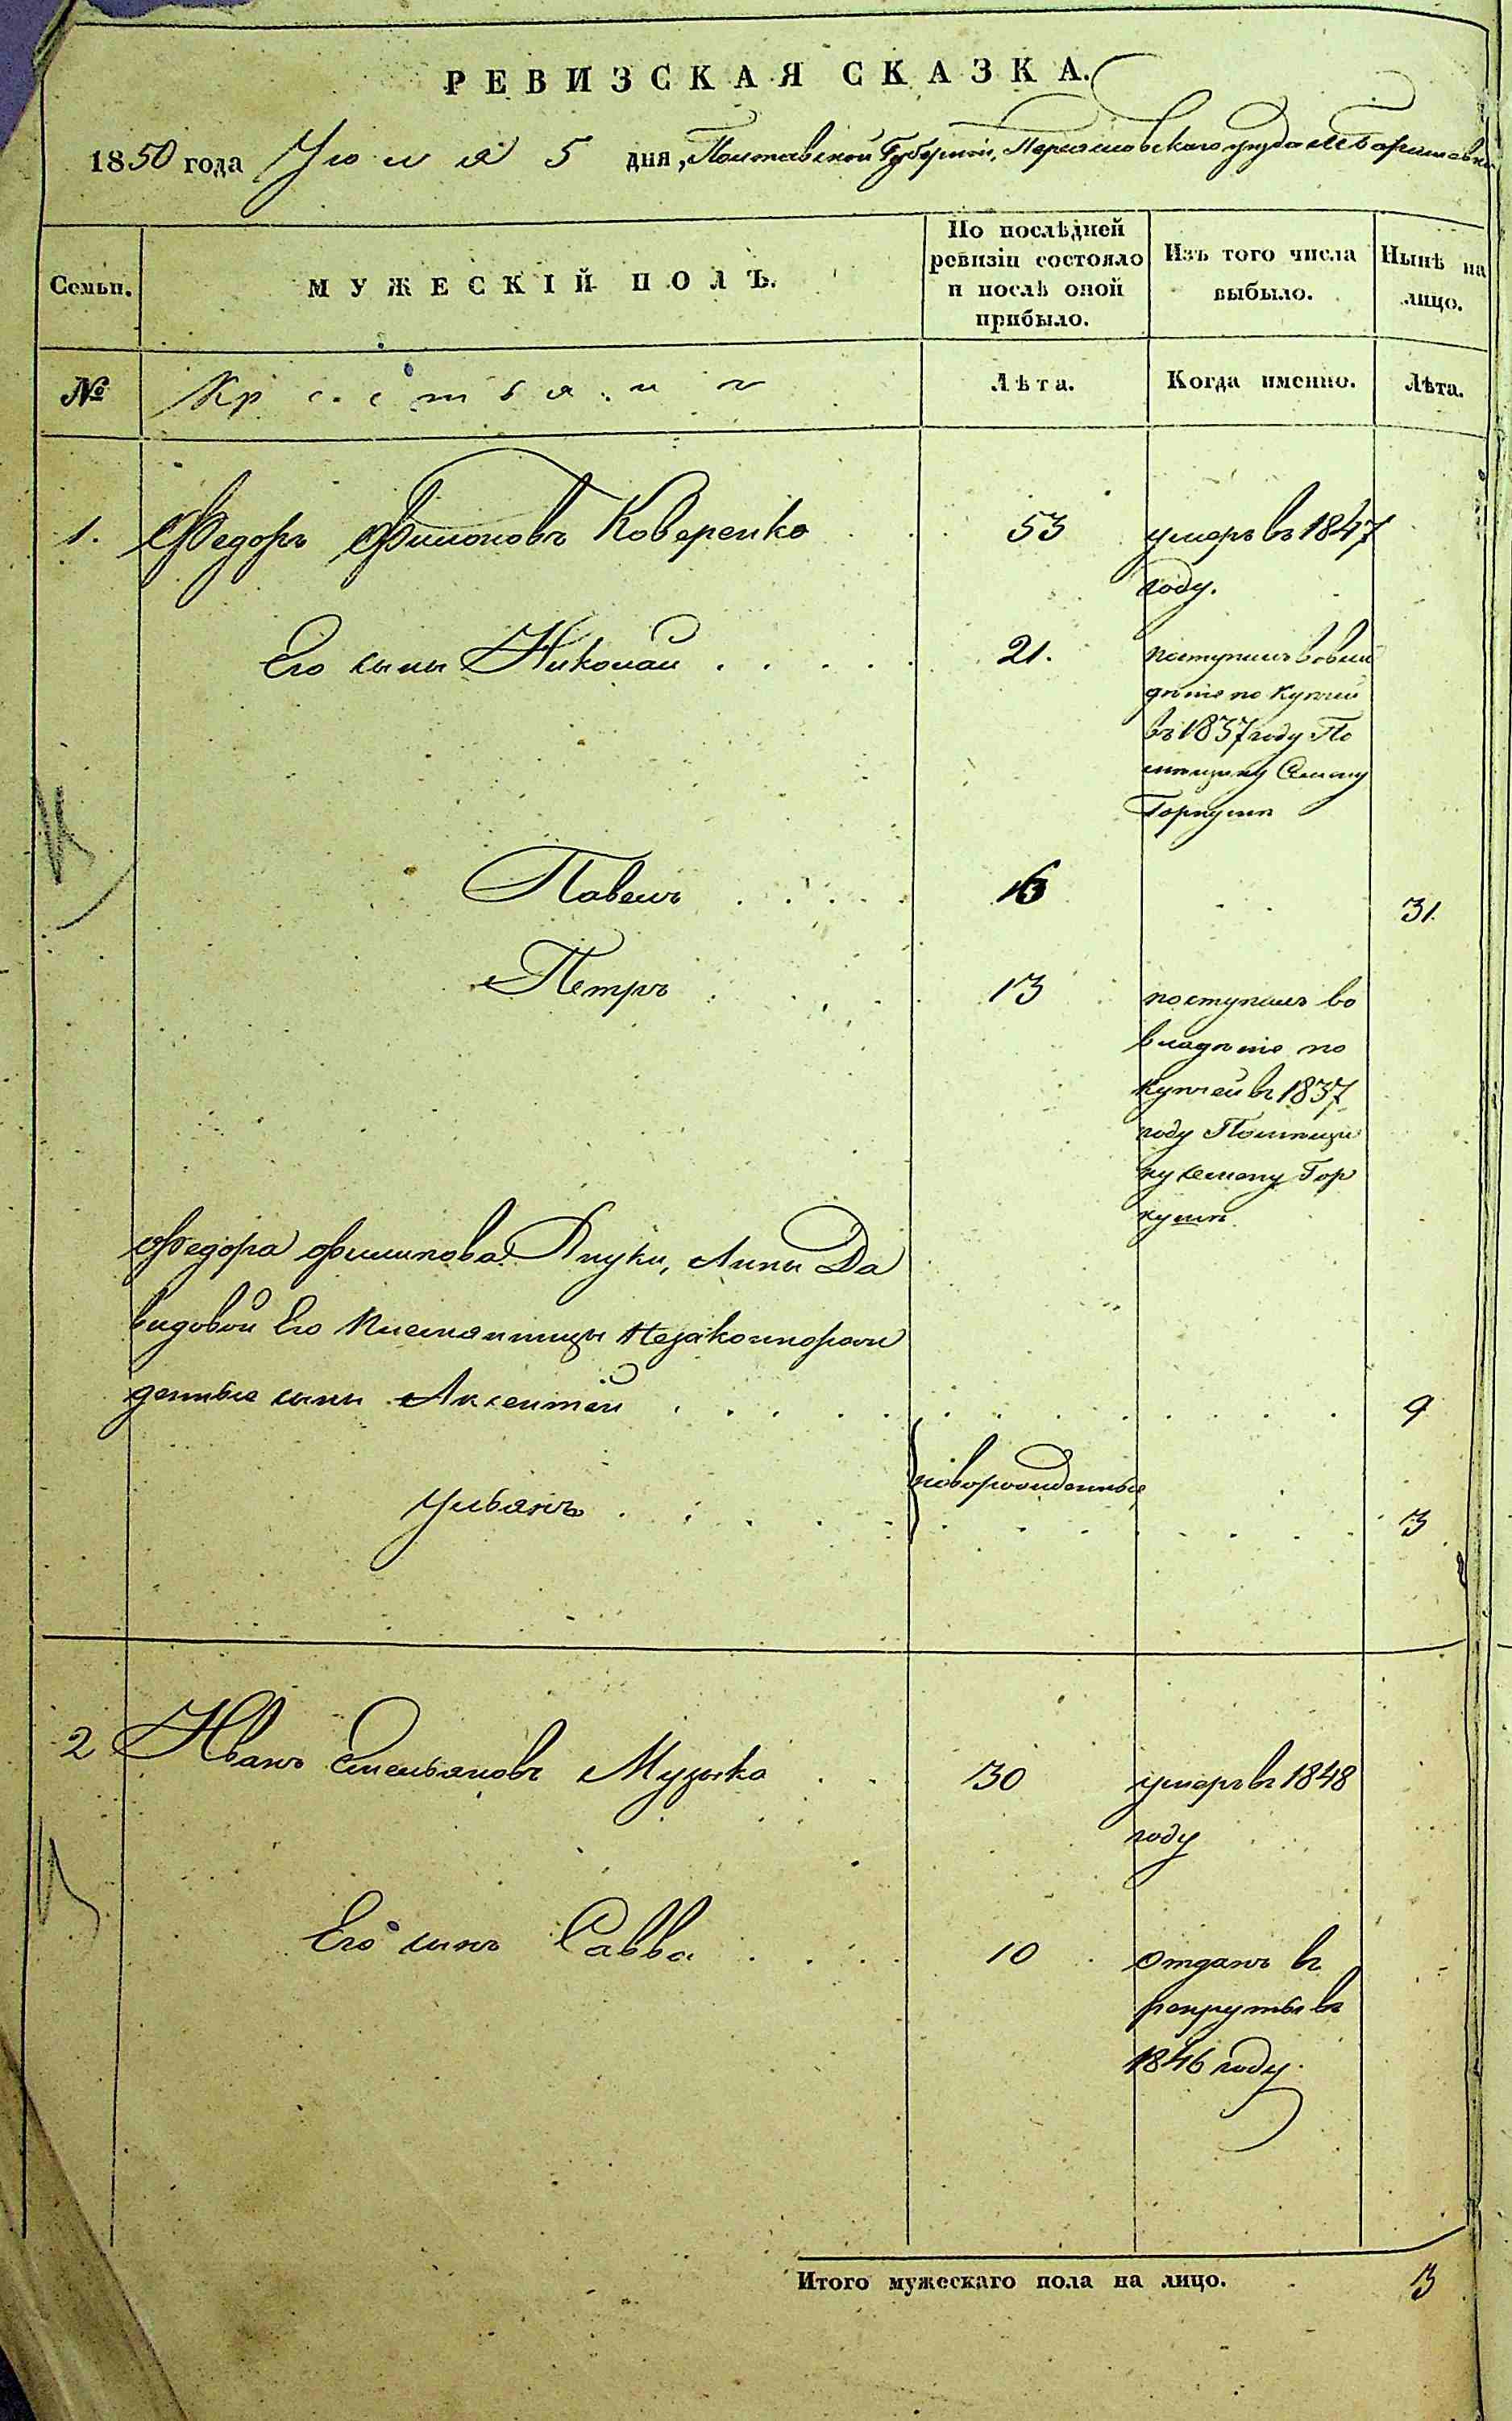 РЕВИЗСКАЯ СКАЗКА.
1850 года Июля 5 дня, Полтавской Губернии, Переяславского уезда
Семьи.
МУЖЕСКІЙ ПОЛЪ.
По послѣдней
ревизіи состояло
и послѣ оной
прибыло.
Изъ того числа
выбыло.
Нынѣ на
лицо.
№
Крестьяне
Лѣта.
Когда именно.
Лѣта.
1. Федоръ Коверенко 53 умеръ въ 1847
году.
Его сыны Николай 21. поступилъ во вла
дѣніе по купчей
въ 1837 году По
мѣщику Семену
Павелъ 16 31.
Петръ 13 поступилъ во
владѣніе по
купчей въ 1837
году Помѣщи
ку Семену
Федора Внуки, Анны Да
видовой Его незаконнорож
денные сыны Аксентій 9
новорожденные
Ульянъ 3
2 Иванъ Емельяновъ Музыка 30 умеръ въ 1848
году
Его сынъ Савва 10 отданъ въ
рекруты въ
1846 году.
Итого мужескаго пола на лицо. 3